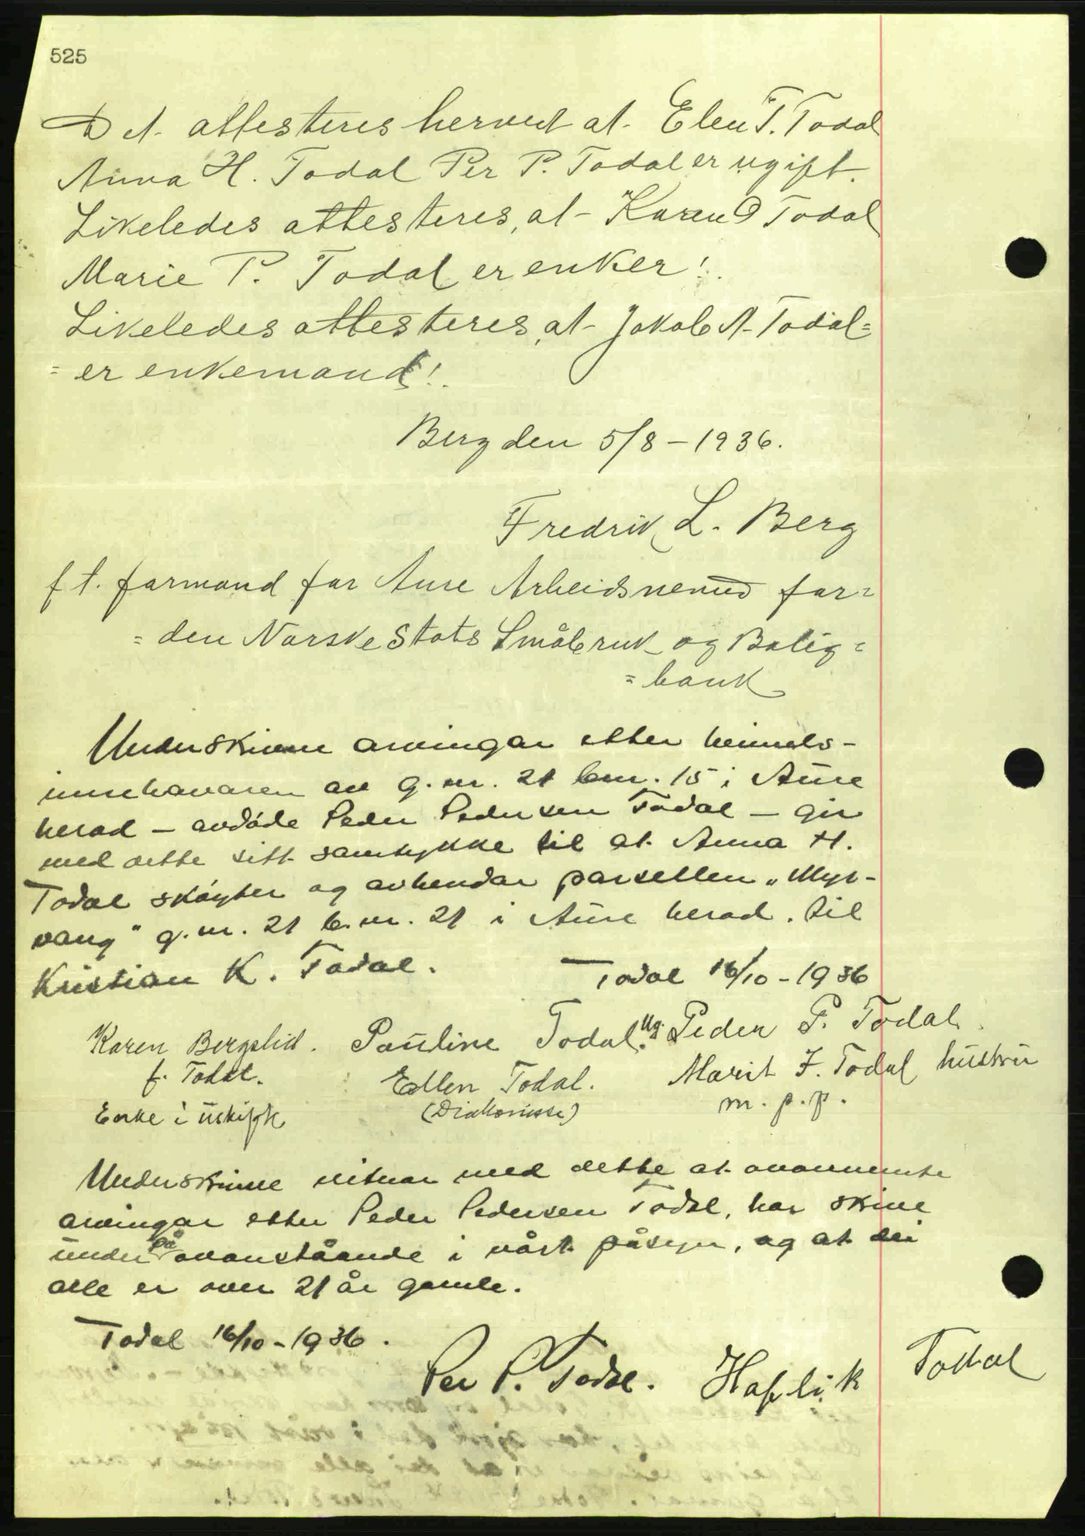 525
Det attesteres herved at Elen T. Todal
Anna H. Todal Per P. Todal er ugift.
Likeledes attesteres, at Karen O Todal
Marie P. Todal er enker!
Likeledes attesteres, at Jakob A. Todal=
= er enkemand!
Berg den 5/8-1936.
Fredrik L. Berg
f t. formand for Aure Arbeidsnemd for=
= den Norske Stats Småbruk og Bolig=
= bank
Underskrivne arvingar etter heimels-
innehavaren av g.nr. 21 bnr. 15 i Aure
herad - avdøde Peder Pedersen Todal - gir
med dette sitt samtykke til at Anna H.
Todal skøyter og avhendar parsellen "Myr-
vang" g.nr. 21 b.nr. 21 i Aure herad. til
Kristian K. Todal.
Todal 16/10-1936
Karen Bergslid. Pauline Todal. Ug. Peder P. Todal.
f. Todal. Ellen Todal. Marit J. Todal hustru
Enke i uskifte (Diakonisse) m.p.p.
Underskrivne vitnar med dette at ovannemnte
arvingar etter Peder Pedersen Todal, har skrive
under på ovanståande i vårt påsyn, og at dei
alle er over 21 år gamle.
Todal 16/10-1936.
Per P. Todal. Haflik Todal